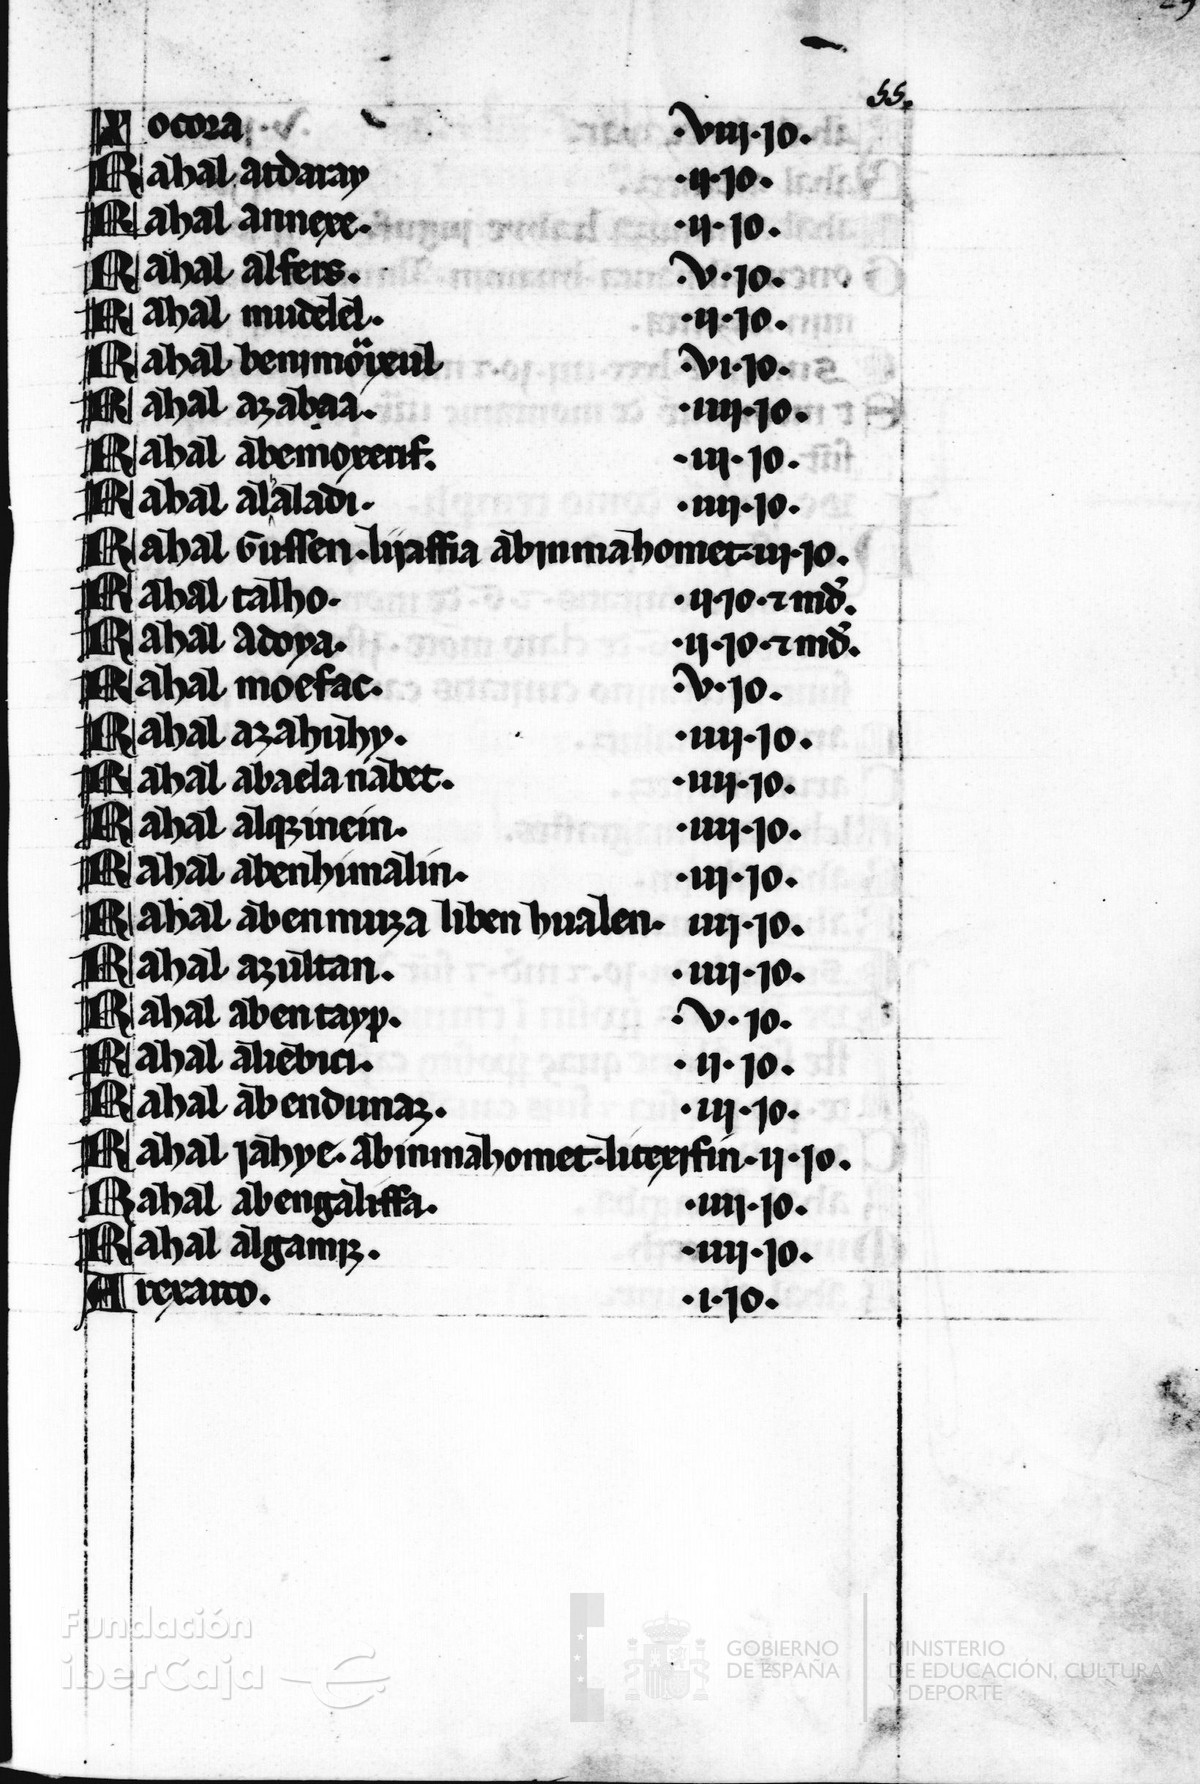 55.
Xocora .viii.io.
Rahal atdaray .ij.io.
Rahal annexe. .ij.io.
Rahal alfers. .v.io.
Rahal mudelel. .ij.io.
Rahal benimöixul .vi.io.
Rahal azabaa. .iiij.io.
Rahal abemoxerif. .iij.io.
Rahal alaladi. .iiij.io.
Rahal Gussen.lijaffia abinmahomet.iij.io.
Rahal talho. .ij.io.⁊ md̃.
Rahal adoya. .ij.io.⁊ md̃.
Rahal moefac. .v.io.
Rahal azahuhy. .iiij.io.
Rahal abdela nabet. .iiij.io.
Rahal alqzinein. .iiij.io.
Rahal abenhimalin. .iij.io.
Rahal abenmuza liben hualen. iiij.io.
Rahal azultan. .iiij.io.
Rahal abentayp. .v.io.
Rahal aliebici. .ij.io.
Rahal abendunaz. .iij.io.
Rahal jahye.abinmahomet.litexifin.ij.io.
Rahal abengaliffa. .iiij.io.
Rahal algamiz. .iiij.io.
Atexarco. .i.io.
Fundación
iberCaja
GOBIERNO
DE ESPAÑA
MINISTERIO
DE EDUCACIÓN, CULTURA
Y DEPORTE